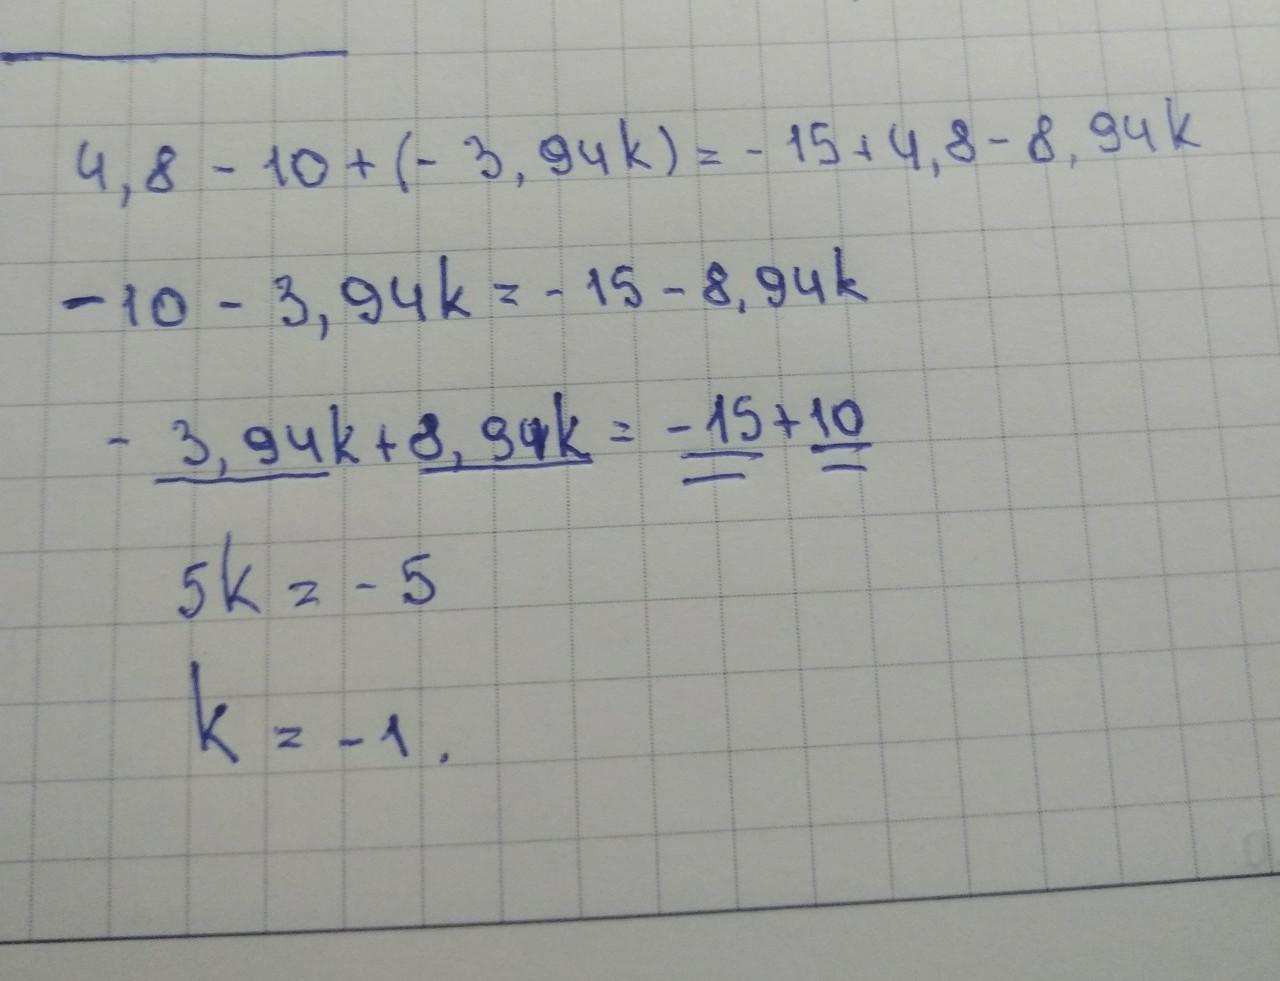 4,8 - 10 + (- 3,94k) = - 15 + 4,8 - 8,94k
- 10 - 3,94k = - 15 - 8,94k
- 3,94k + 8,94k = - 15 + 10
5k = - 5
k = - 1.